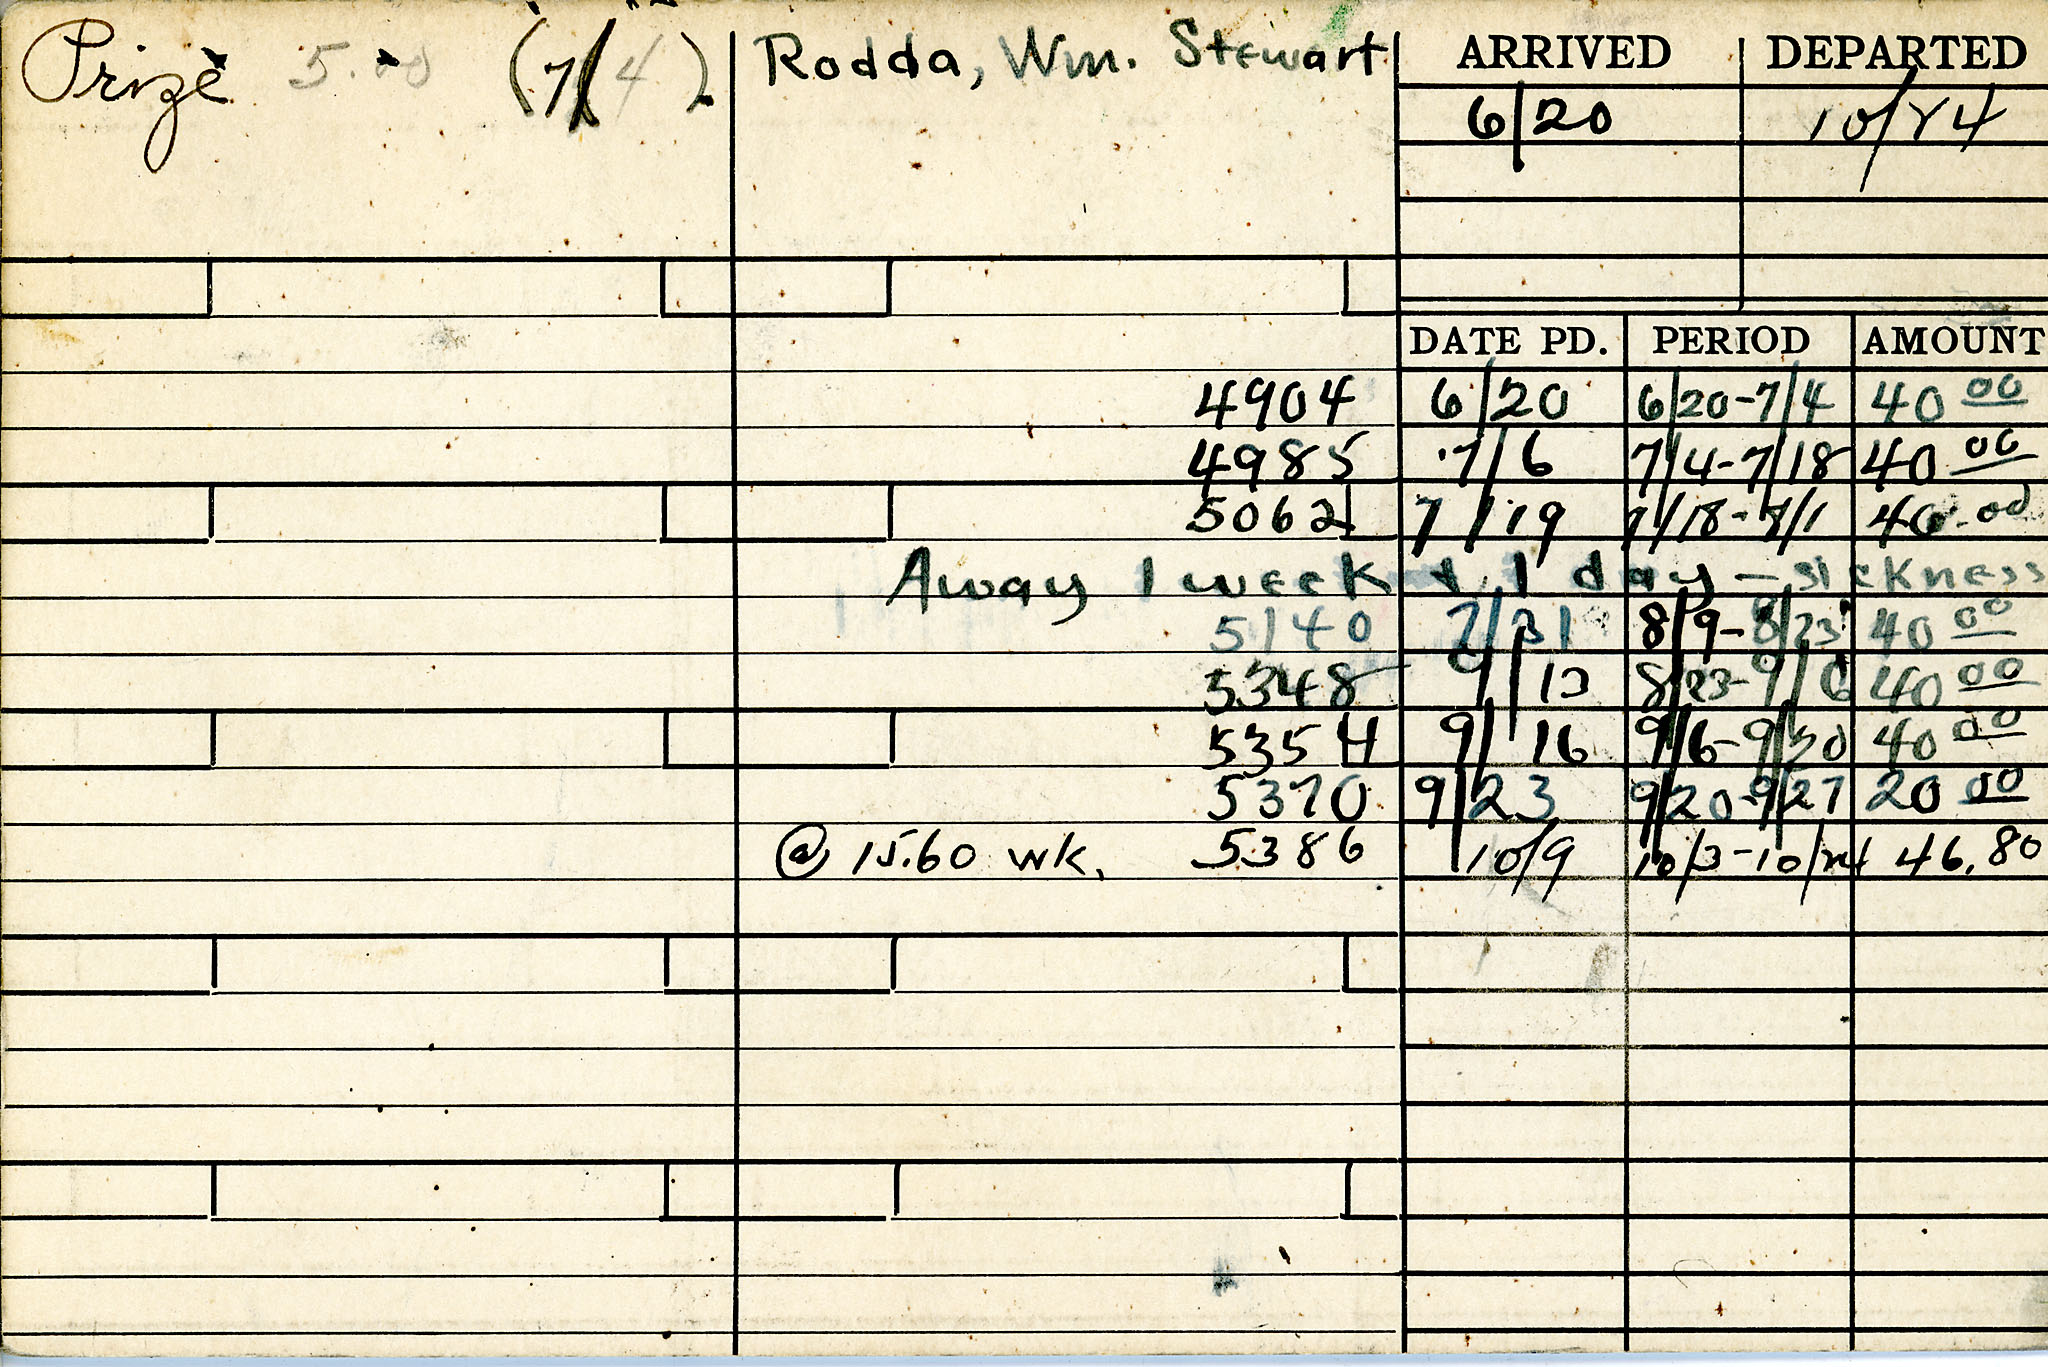 Prize 5.00 (7/4)
Rodda, Wm. Stewart
ARRIVED DEPARTED
6/20 10/24
DATE PD. PERIOD AMOUNT
4904 6/20 6/20-7/4 40 00
4985 7/6 7/4-7/18 40 00
5062 7/19 7/18-8/1 40.00
Away 1 week & 1 day - sickness
5140 7/31 8/9-8/23 40 00
5348 9/13 8/23-9/6 40 00
5354 9/16 9/6-9/20 40 00
5370 9/23 9/20-9/27 20 00
@ 15.60 wk. 5386 10/9 10/3-10/24 46.80